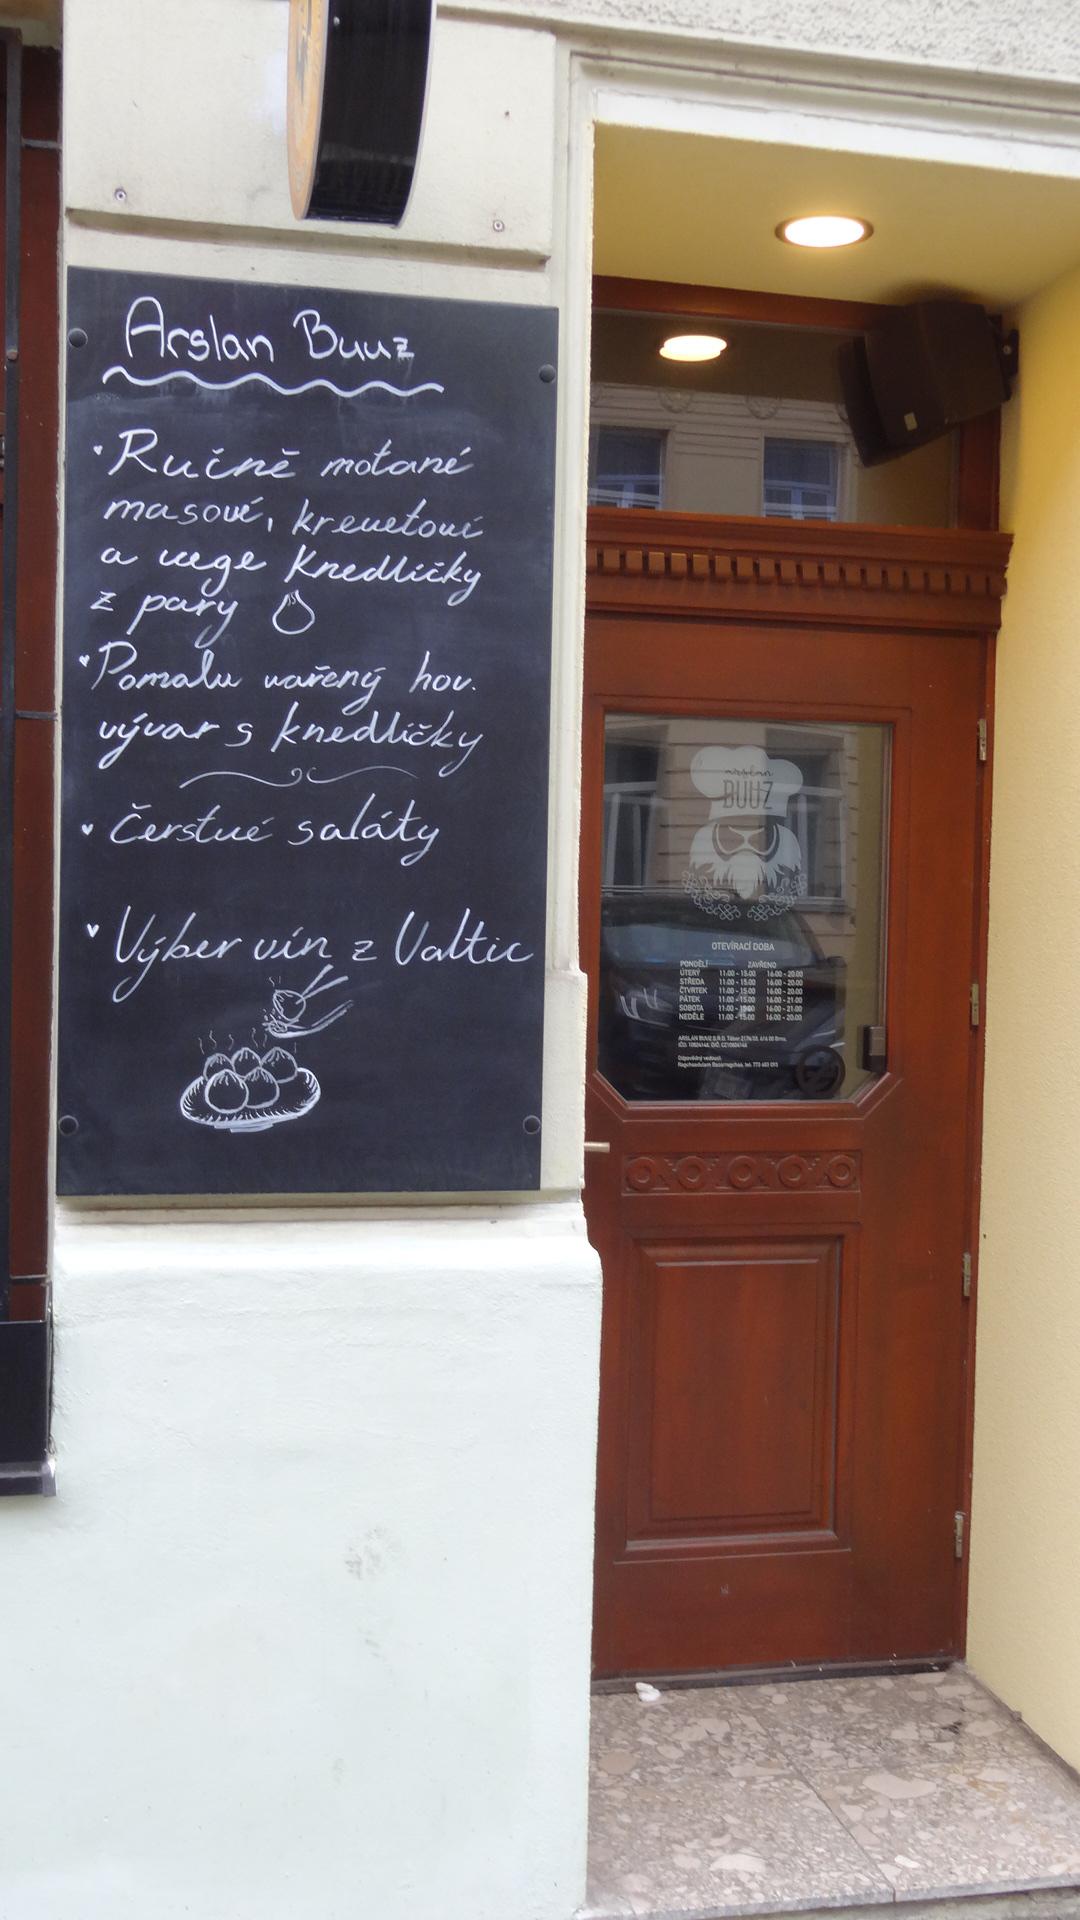 Arslan Buuz
Ručně motané
masové, krevetové
a vege knedlíčky
z páry
Pomalu vařený hov.
vývar s knedlíčky
Čerstvé saláty
Výběr vín z Valtic
arslan
BUUZ
OTEVÍRACÍ DOBA
PONDĚLÍ ZAVŘENO
ÚTERÝ 11:00 - 15:00 16:00 - 20:00
STŘEDA 11:00 - 15:00 16:00 - 20:00
ČTVRTEK 11:00 - 15:00 16:00 - 20:00
PÁTEK 11:00 - 15:00 16:00 - 21:00
SOBOTA 11:00 - 15:00 16:00 - 21:00
NEDĚLE 11:00 - 15:00 16:00 - 20:00
ARSLAN BUUZ S.R.O. Tábor 616 00 Brno,
Odpovědný vedoucí:
tel: 773 603 093